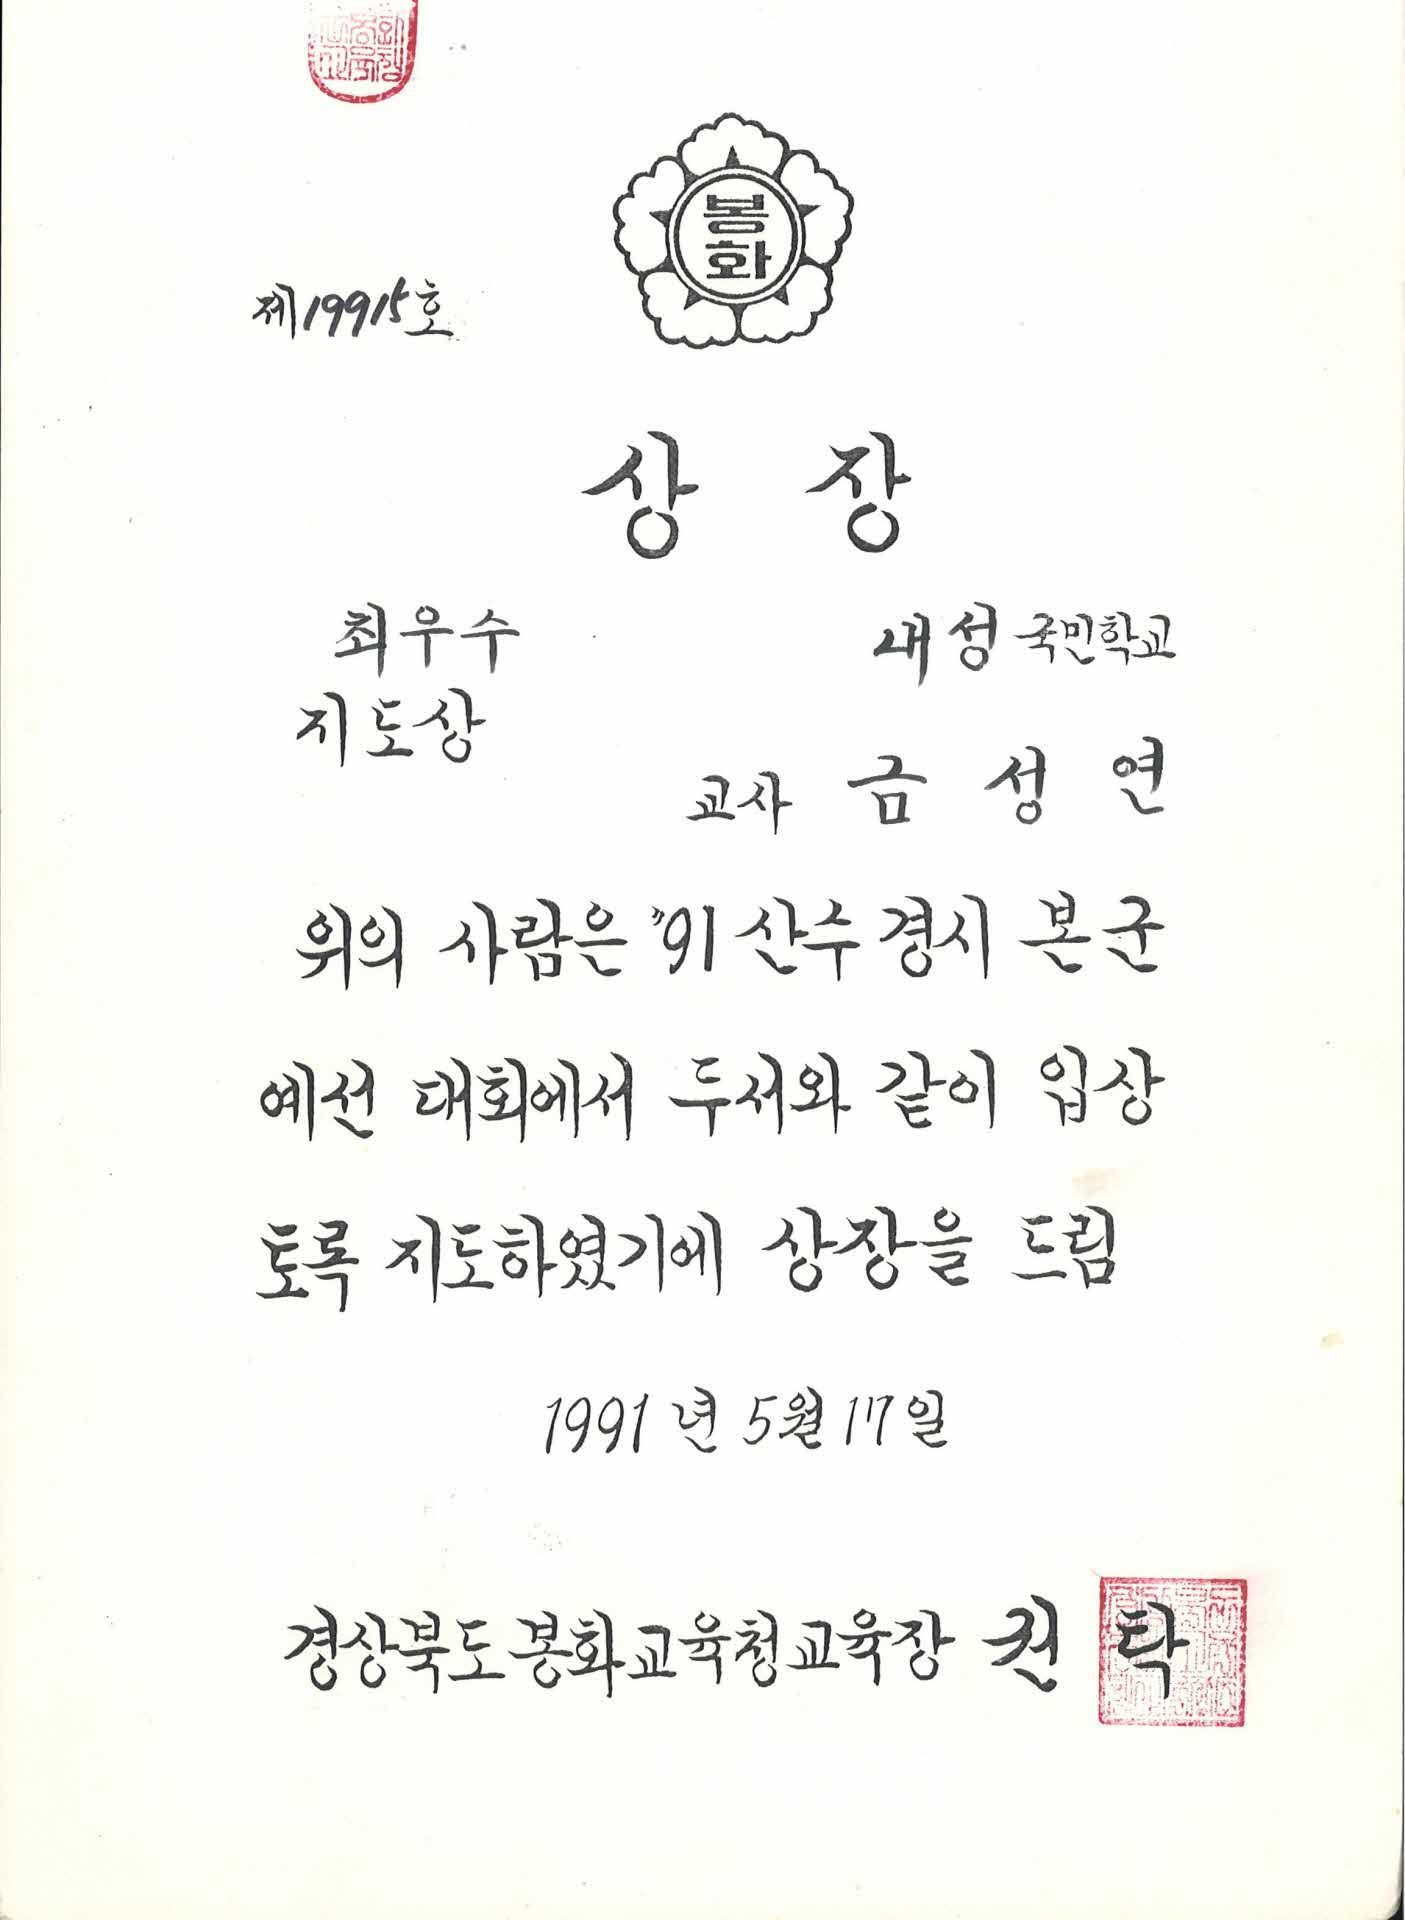 봉화
제19915호
상 장
최우수 내성국민학교
지도상
교사 금 성 연
위의 사람은 "91 산수 경시 본군
예선 대회에서 두서와 같이 입상
토록 지도하였기에 상장을 드림
1991년 5월 17일
경상북도봉화교육청교육장 권 탁